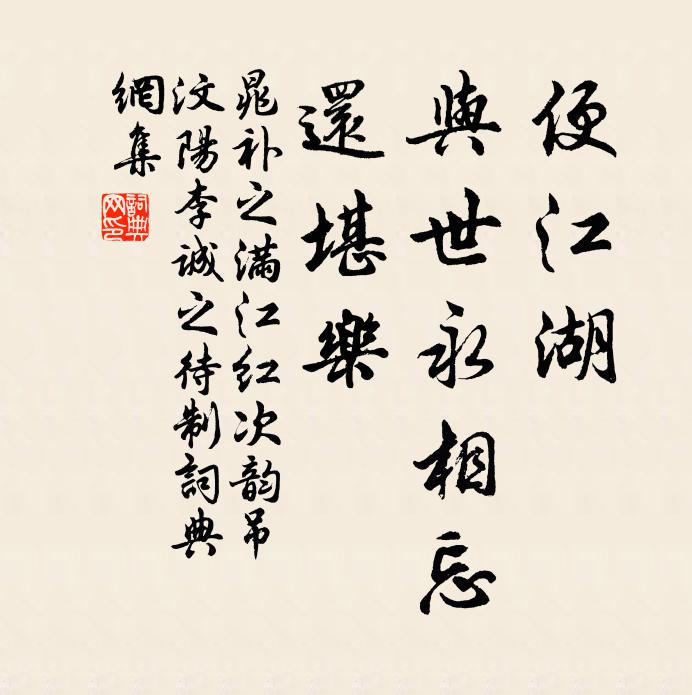 便江湖
與世永相忘
還堪樂
晁补之满江红次韵吊
汶陽李誠之待制詞典
網集
詞典網印